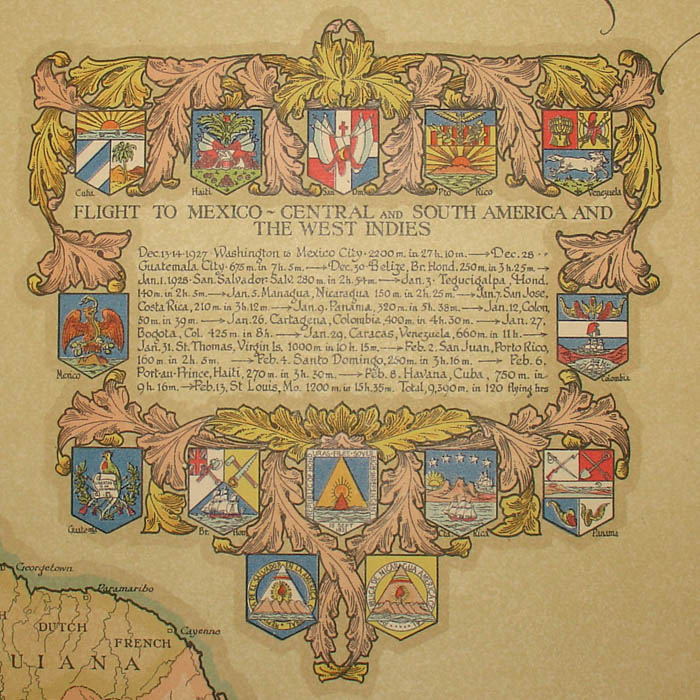 Cuba
Haiti
San Dom.
Pto Rico
Venezuela
FLIGHT TO MEXICO ~ CENTRAL AND SOUTH AMERICA AND
THE WEST INDIES
Dec. 13-14-1927 Washington to Mexico City 2200 m. in 27 h. 10 m. → Dec. 28
Guatemala City 675 m. in 7 h. 5 m. → Dec. 30 Belize, Br. Hond. 250 m. in 3 h. 25 m →
Jan. 1. 1928 San. Salvador. Salv. 280 m. in 2 h. 54 m → Jan. 3. Tegucigalpa, Hond.
140 m. in 2 h. 5 m. → Jan. 5. Managua, Nicaragua 150 m. in 2 h. 25 m → Jan. 7. San Jose,
Costa Rica, 210 m in 3 h. 12 m → Jan. 9. Panama, 320 m. in 5 h. 38 m → Jan. 12, Colon,
50 m. in 39 m. → Jan. 26. Cartagena, Colombia, 400 m. in 4 h. 30 m → Jan. 27,
Bogota, Col. 425 m. in 8 h. → Jan. 29, Caracas, Venezuela, 660 m. in 11 h. →
Jan. 31. St. Thomas, Virgin Is. 1000 m in 10 h. 15 m. → Feb. 2. San Juan, Porto Rico,
160 m in 2 h. 5 m. → Feb. 4. Santo Domingo, 250 m in 3 h. 16 m → Feb. 6,
Port-au-Prince, Haiti, 270 m. in 3 h. 30 m. → Feb. 8. Havana, Cuba, 750 m. in
9 h. 16 m. → Feb. 13, St Louis, Mo. 1200 m. in 15 h. 35 m. Total, 9,390 m. in 120 flying hrs
Mexico
Colombia
Guatemla
Br. Hon
Cta Rica
Panama
Georgetown
Paramaribo
Cayenne
DUTCH
FRENCH
UIANA